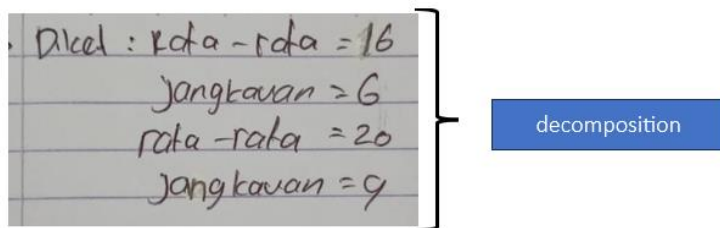 . Diket : Rata - rata = 16
jangkauan = 6
rata - rata = 20
jangkauan = 9
decomposition